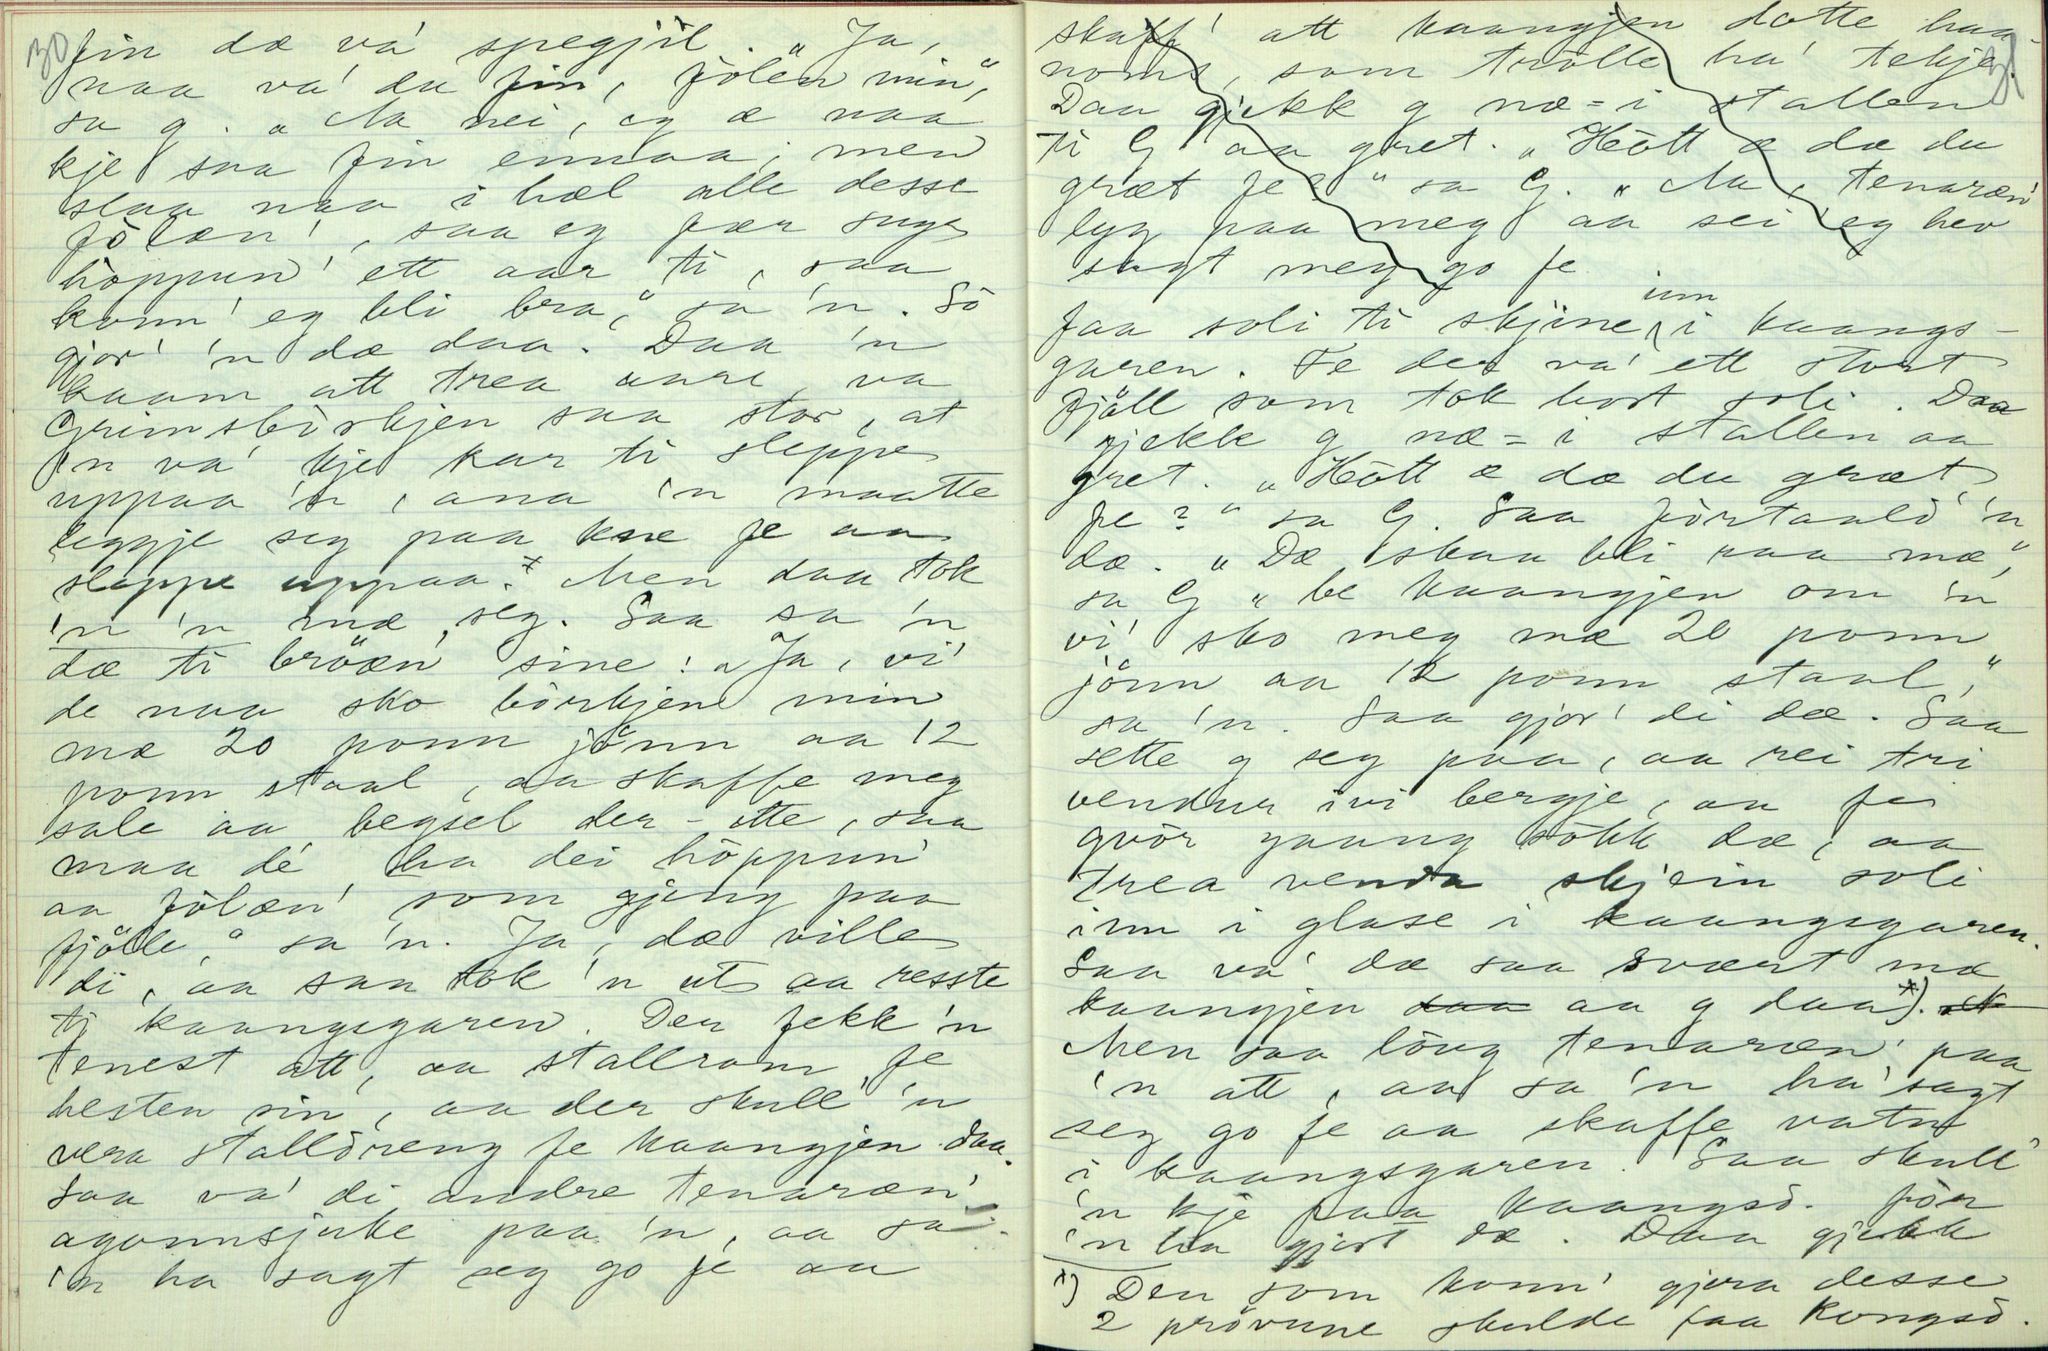 30
fin dæ va' spegjil. „Ja,
naa va' du fin, fölen min",
sa g. „Aa nei, eg æ naa
kje saa fin ennaa, men
slaa naa i hæl alle desse
fölæn', saa eg fær suge
höppun' ett aar ti, saa
konn' eg bli bra," sa 'n. So
gjor' 'n dæ daa. Daa 'n
kaam att trea aare, va
Grimsbörkjen saa stor, at
'n va' kje kar ti sleppe
uppaa 'n, ana 'n maatte
leggje seg paa kne fe aa
sleppe uppaa.* Men daa tok
'n 'n mæ seg. Saa sa 'n
dæ ti bröæn' sine: „Ja, vi'
de naa sko börkjen min
mæ 20 ponn jönn aa 12
ponn staal, aa skaffe meg
sale aa begsel der-ette, saa
maa de' ha dei höppun'
aa fölæn' som gjeng paa
fjölle," sa 'n. Ja, dæ ville
di, aa saa tok 'n ut aa resste
ti kaangsgaren. Der fekk 'n
tenest att, aa stallrom fe
hesten sin, aa der skull' 'n
vera stalldreng fe kaangjen daa.
Saa va' di andre tenaræn'
agonnsjuke paa 'n, aa sa
'n ha sagt seg go fe aa
31
skaff' att kaangjen dotte haa-
noms, som trölle ha' tekje.
Daa gjekk g næ-i stallen
ti G aa gret. „Hött æ dæ du
græt fe?" sa G. „Aa, tenaræn'
lyg paa meg aa sei eg hev
sagt meg go fe
faa soli ti skjine inn i kaangs-
garen. Fe der va' ett stort
fjöll som tok bort soli. Daa
gjekk g næ-i stallen aa
gret. „Hött æ dæ du græt
fe?" sa G. Saa förtaald' 'n
dæ. „Dæ skaa bli raa mæ,"
sa G „be kaangjen om 'n
vi' sko meg mæ 20 ponn
jönn aa 12 ponn staal,"
sa 'n. Saa gjor' di dæ. Saa
sette g seg paa, aa rei tri
vendur ivi bergje, aa fe
gvör gaang sökk dæ, aa
trea venda skjein soli
inn i glase i kaangsgaren.
Saa va' dæ saa svært mæ
kaangjen saa aa g daa*). sk
Men saa löug tenaræn' paa
'n att, aa sa 'n ha' sagt
seg go fe aa skaffe vatn
i kaangsgaren. Saa skull'
'n kje faa kaangsd. för
'n ha gjort dæ. Daa gjekk
*) Den som konn' gjera desse
2 prövune skulde faa kongsd.